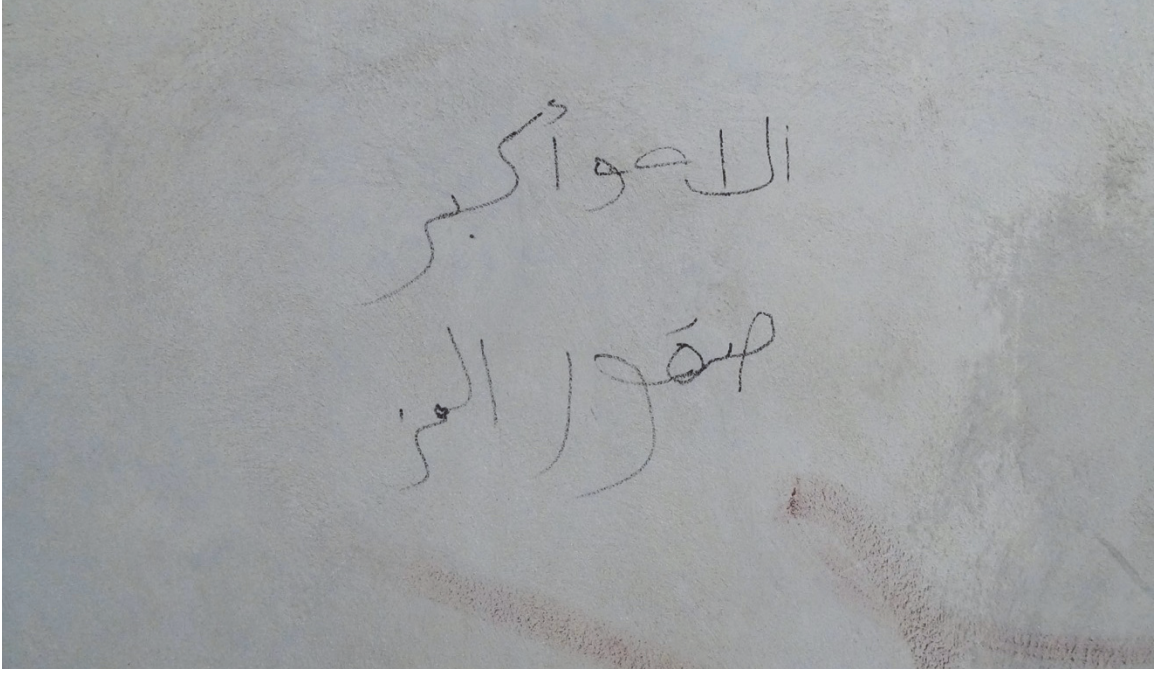 الاهو أكبر
صقور العز